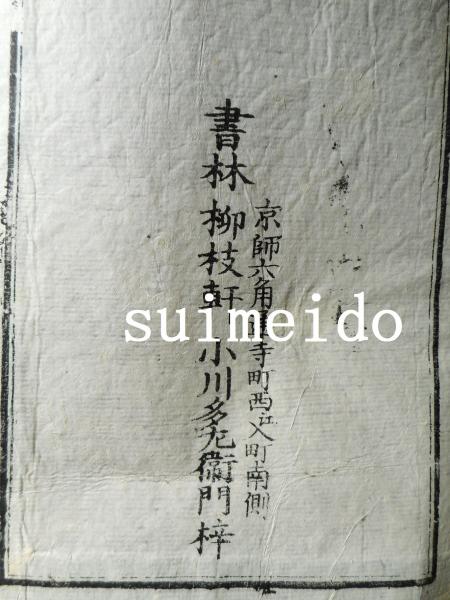 京師六角寺町西江入町南側
書林 柳枝軒 小川多左衛門梓
suimeido